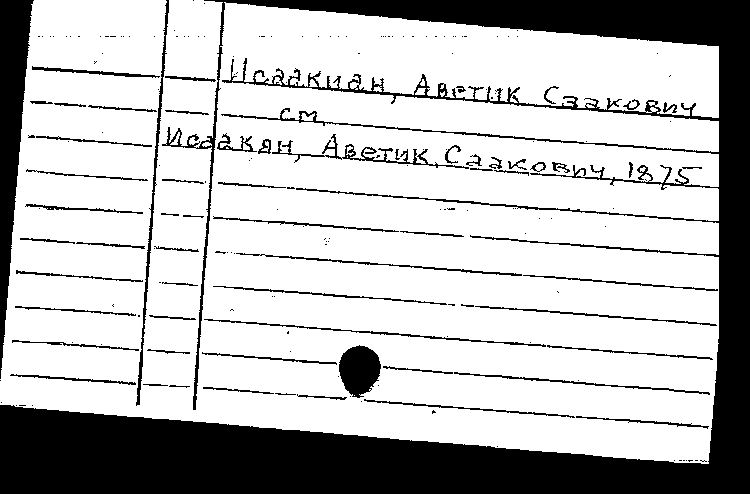 Исаакиан, Аветик Саакович
см.
Исаакян, Аветик Саакович, 1875